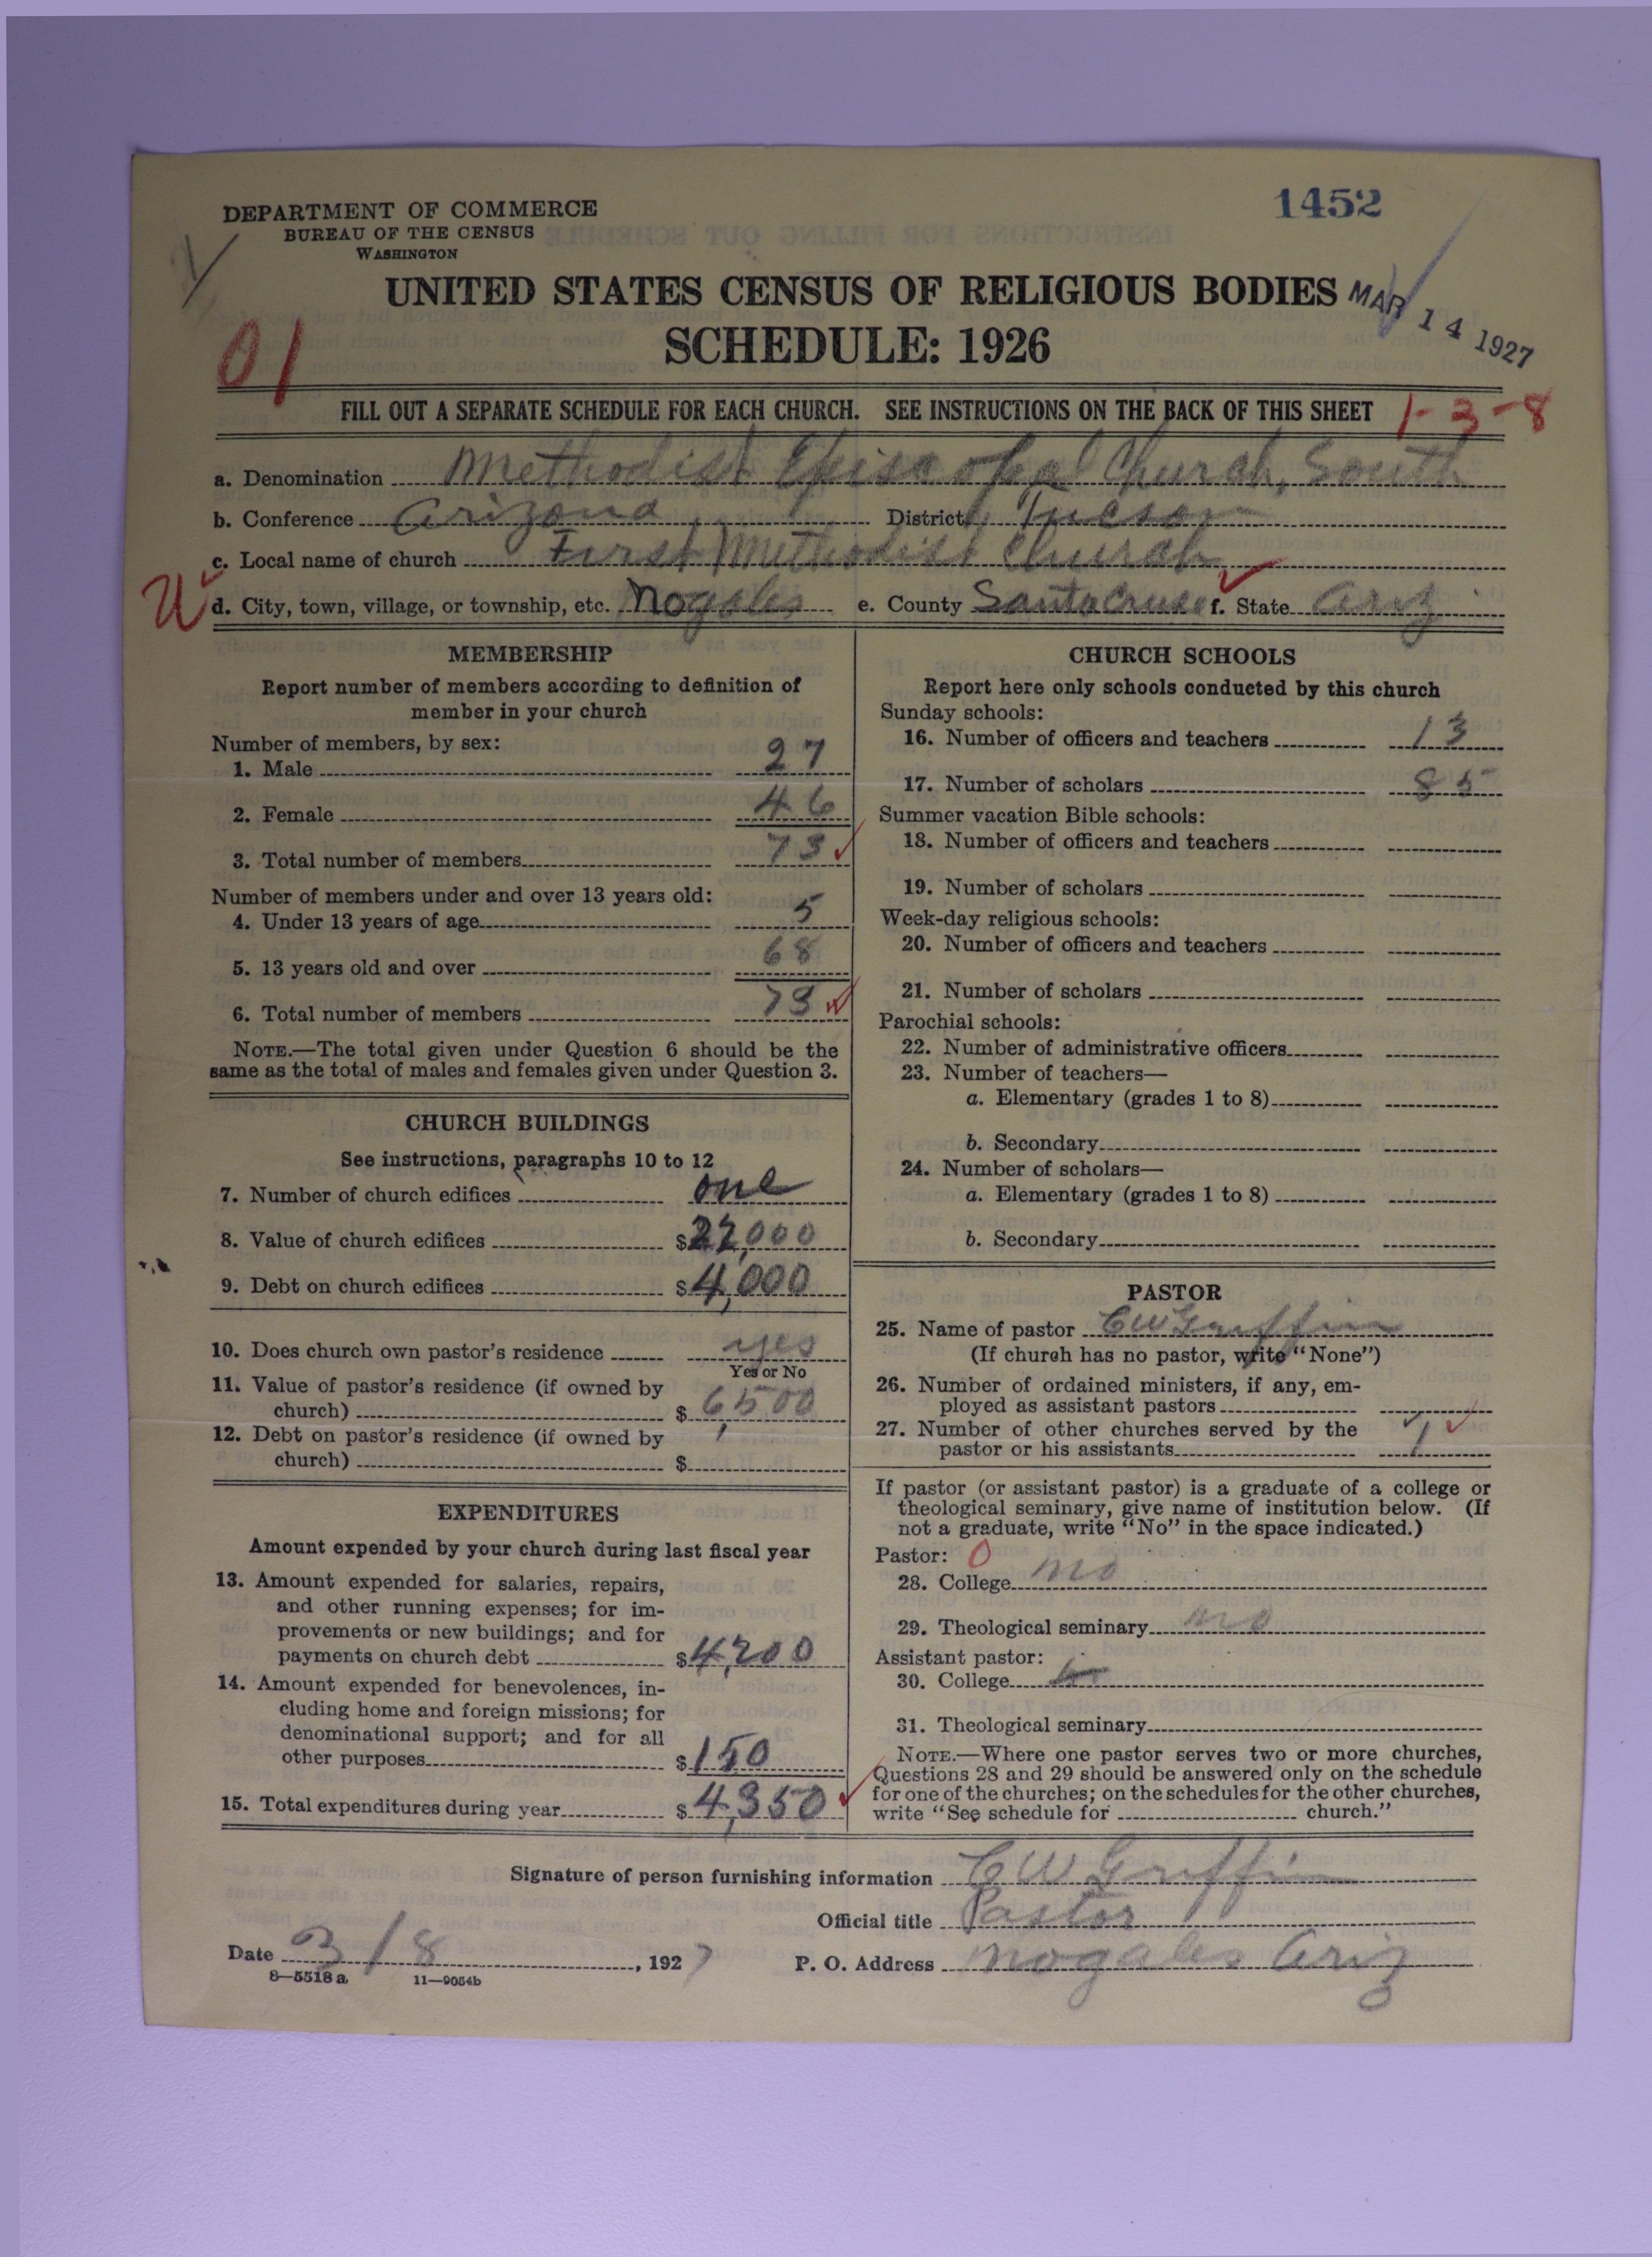 1452
DEPARTMENT OF COMMERCE
BUREAU OF THE CENSUS
WASHINGTON
UNITED STATES CENSUS OF RELIGIOUS BODIES
MAR 14 1927
SCHEDULE: 1926
01
FILL OUT A SEPARATE SCHEDULE FOR EACH CHURCH. SEE INSTRUCTIONS ON THE BACK OF THIS SHEET 1-3-8
a. Denomination Methodist Episcopal Church, South
b. Conference Arizona District Tucson
c. Local name of church First Methodist Church
d. City, town, village, or township, etc. Nogales e. County Santa Cruse f. State Ariz
MEMBERSHIP
Report number of members according to definition of
member in your church
Number of members, by sex:
1. Male 27
2. Female 46
3. Total number of members 73
Number of members under and over 13 years old:
4. Under 13 years of age 5
5. 13 years old and over 68
6. Total number of members 73
NOTE.—The total given under Question 6 should be the
same as the total of males and females given under Question 3.
CHURCH BUILDINGS
See instructions, paragraphs 10 to 12
7. Number of church edifices one
8. Value of church edifices $22,000
9. Debt on church edifices $4,000
10. Does church own pastor's residence yes
Yes or No
11. Value of pastor's residence (if owned by
church) $6,500
12. Debt on pastor's residence (if owned by
church) $
EXPENDITURES
Amount expended by your church during last fiscal year
13. Amount expended for salaries, repairs,
and other running expenses; for im-
provements or new buildings; and for
payments on church debt $4,200
14. Amount expended for benevolences, in-
cluding home and foreign missions; for
denominational support; and for all
other purposes $150
15. Total expenditures during year $4,350
CHURCH SCHOOLS
Report here only schools conducted by this church
Sunday schools:
16. Number of officers and teachers 13
17. Number of scholars 85
Summer vacation Bible schools:
18. Number of officers and teachers
19. Number of scholars
Week-day religious schools:
20. Number of officers and teachers
21. Number of scholars
Parochial schools:
22. Number of administrative officers
23. Number of teachers—
a. Elementary (grades 1 to 8)
b. Secondary
24. Number of scholars—
a. Elementary (grades 1 to 8)
b. Secondary
PASTOR
25. Name of pastor C W Griffin
(If church has no pastor, write "None")
26. Number of ordained ministers, if any, em-
ployed as assistant pastors
27. Number of other churches served by the
pastor or his assistants 1
If pastor (or assistant pastor) is a graduate of a college or
theological seminary, give name of institution below. (If
not a graduate, write "No" in the space indicated.)
Pastor: 0
28. College no
29. Theological seminary no
Assistant pastor:
30. College
31. Theological seminary
NOTE.—Where one pastor serves two or more churches,
Questions 28 and 29 should be answered only on the schedule
for one of the churches; on the schedules for the other churches,
write "See schedule for church."
Signature of person furnishing information C W Griffin
Official title Pastor
Date 3/8, 1927 P. O. Address Nogales Ariz
8—5518 a 11—9054b